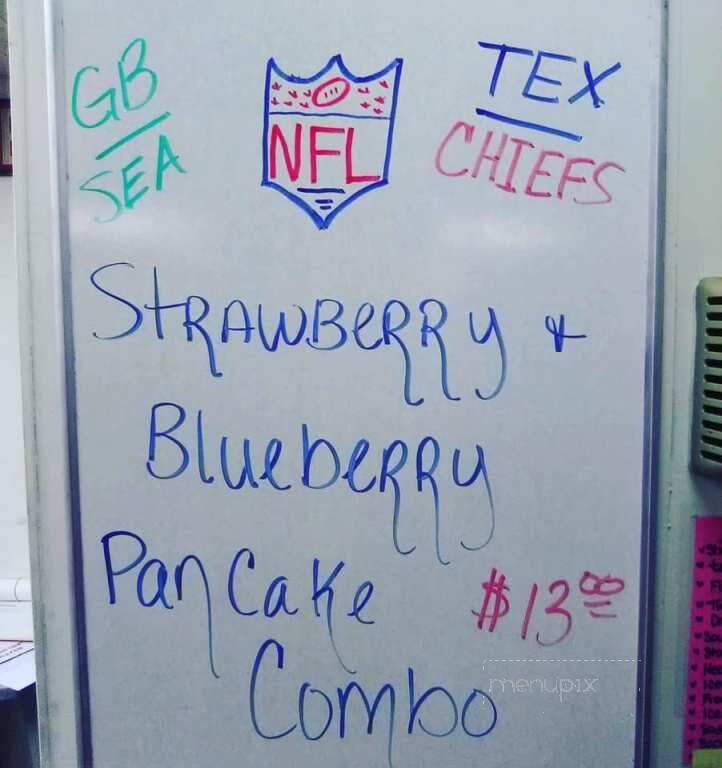 GB
SEA
NFL
TEX
CHIEFS
Strawberry &
Blueberry
Pancake $13.00
Combo
menupix